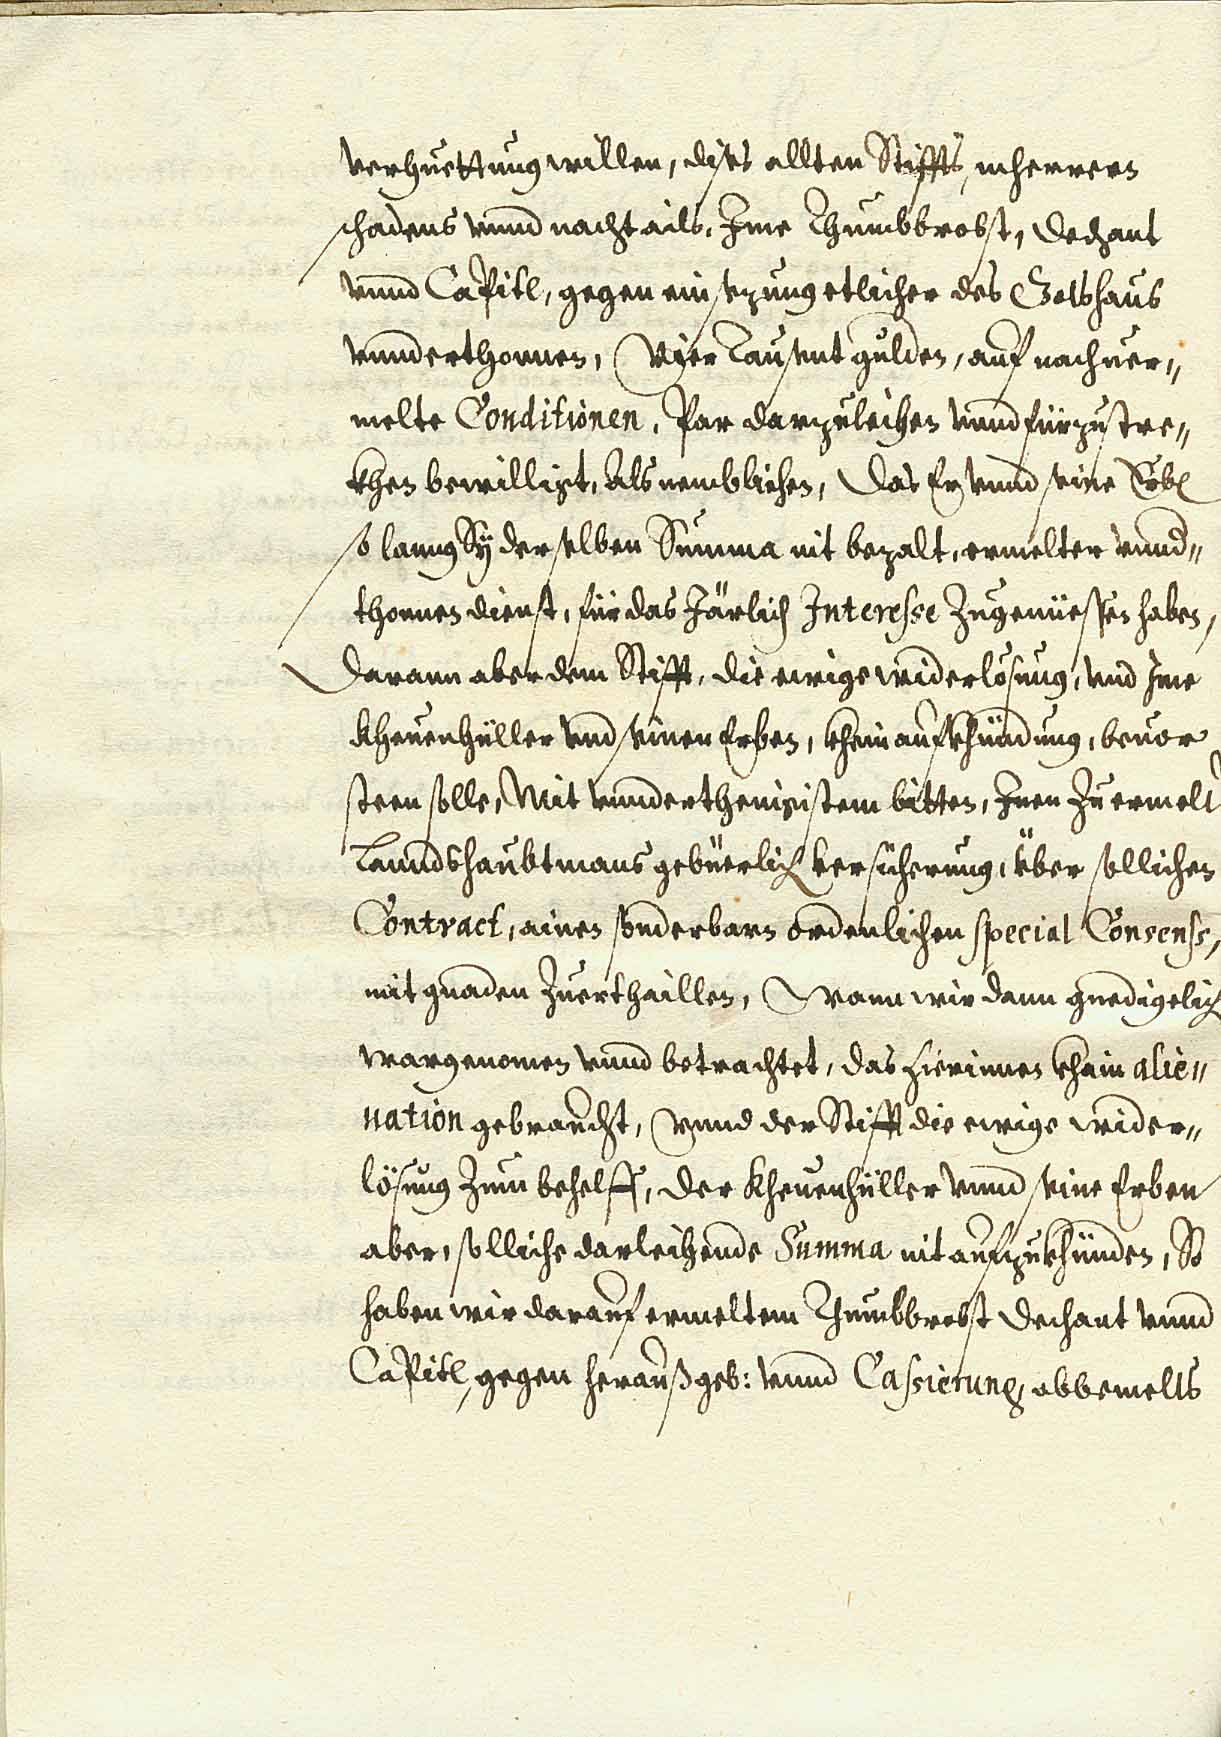 verhuettung willen, dises allten Stiffts, mehrern
schadens vnnd nachtails, Ime Thumbbrobst, Dechant
vnnd Capitl, gegen einsezung etlicher des Gotshaus
vnnderthonnen, Vier Tausent gulden, auf nachuer„
melte Conditionen, Par darzuleihen vnnd fürzustre„
khen bewilligt, Als nemblichen, Das Er vnnd seine Erben
so lanng Sÿ derselben Summa nit bezalt, ermelter vnnd„
thonnen dienst, für das Järlich Interesse Zugenüessen haben,
Darann aber dem Stifft, die ewige widerlösung, vnd Ime
Kheuenhüller vnd seinen Erben, khein aufkhündung, beuor
steen solle, Mit vnnderthenigistem bitten, Inen Zu ermelts
Lanndshaubtmans gebüerlich versicherung, über sollichen
Contract, ainen sonderbarn ordenlichen special Consenss,
mit gnaden Zuerthaillen, Wann wir dann gnedigelich
wargenomen vnnd betrachtet, das hierinnen khain alie„
nation gebraucht, Vnnd der Stifft die ewige wider„
lösung Zum behelff, der Kheuenhüller vnnd seine Erben
aber, solliche darleihende Summa nit aufzukhünden, So
haben wir darauf ermeltem Thumbbrobst Dechant vnnd
Capitl, gegen heraußgeb: vnnd Cassierung, obbemelts